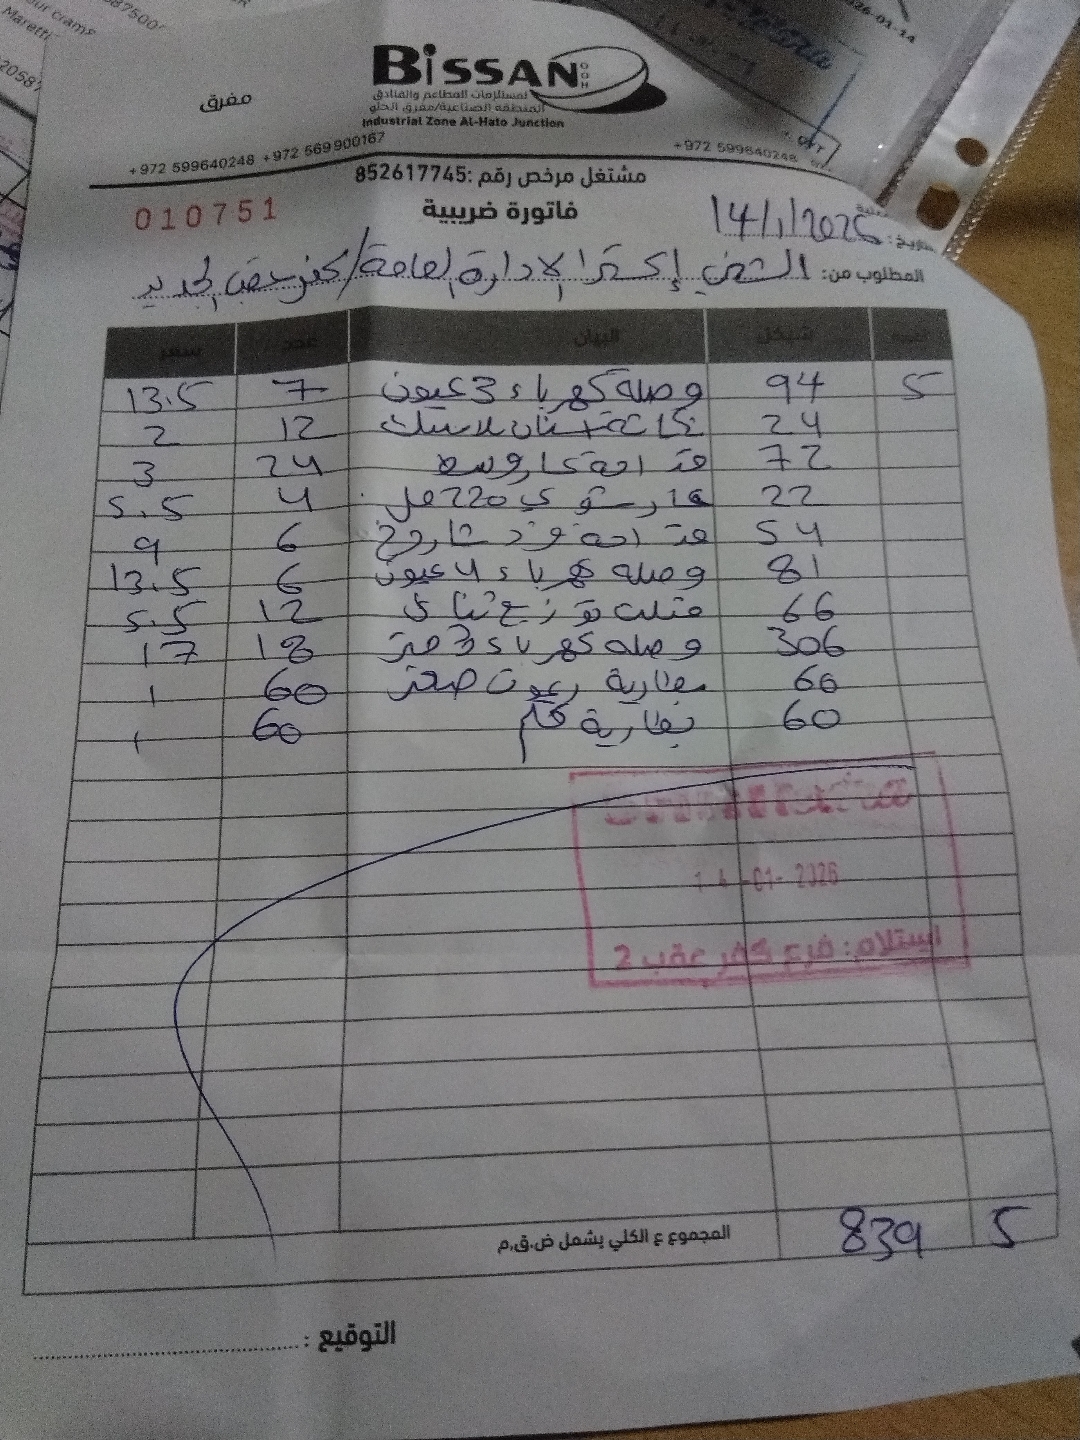 BISSAN
لمستلزمات المطاعم والفنادق
المنطقة الصناعية/مفرق الحلو
Industrial Zone Al-Halo Junction
مفرق
+972 599640248 +972 569900167
+972 599640248
مشتغل مرخص رقم: 852617745
010751
فاتورة ضريبية
14/1/2026
المطلوب من: الشني إكسترا الإدارة العامة/كفر عقب الجديد
سعر عدد البيان شيكل
13.5 7 وصلة كهرباء 3 عيون 94 5
2 12 أسنان بلاستيك 24
3 24 72
5.5 4 220 مل 22
9 6 54
13.5 6 وصلة كهرباء 4 عيون 81
5.5 12 66
17 18 وصلة كهرباء 3 متر 306
1 60 بطارية ريموت صغير 60
1 60 بطارية قلم 60
14-01-2026
استلام: فرع كفر عقب 2
المجموع ع الكلي يشمل ض.ق.م 839 5
التوقيع :